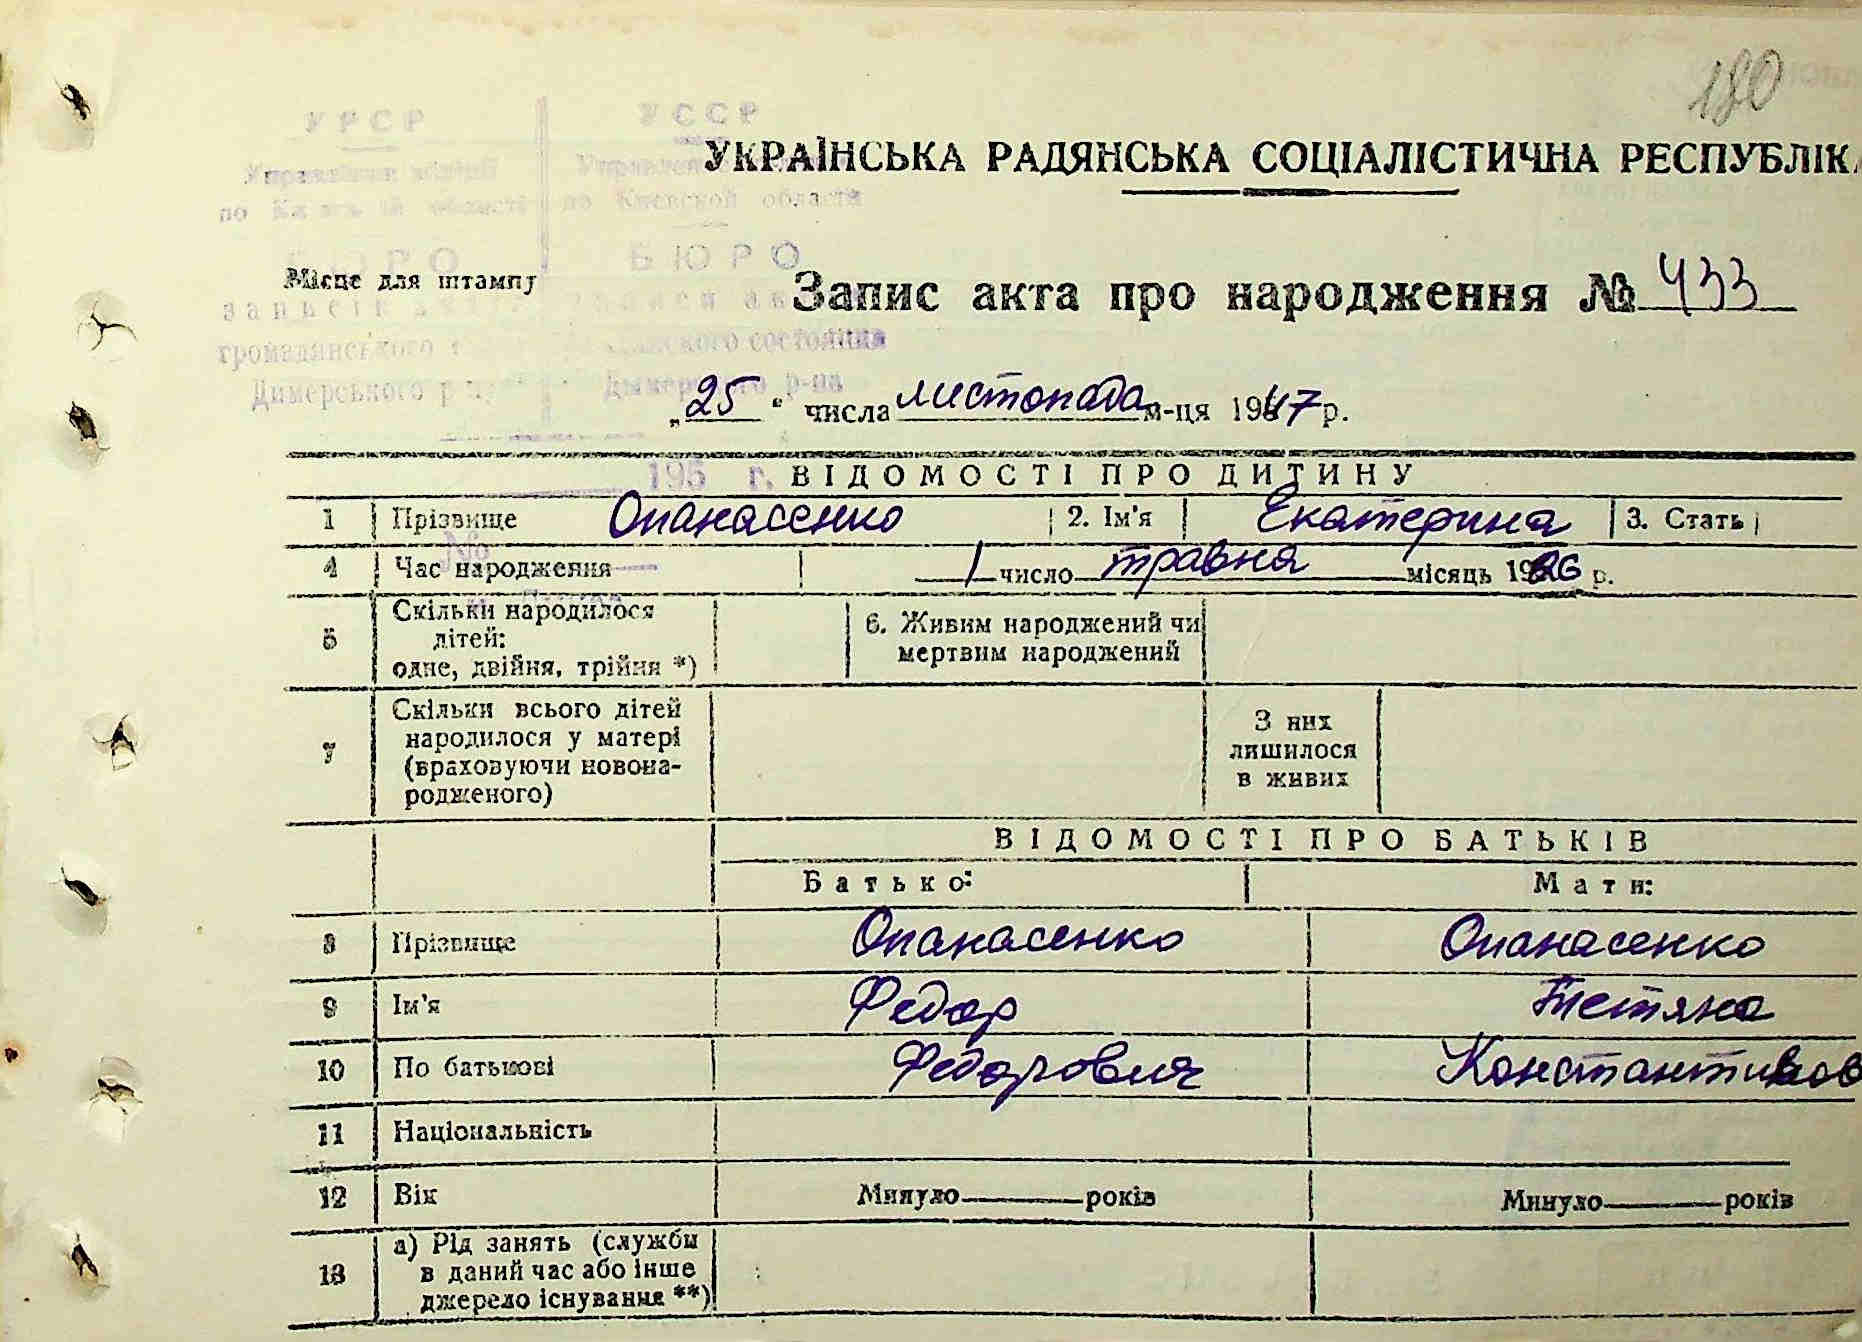 180
УРСР УССР
по Киевской области
БЮРО БЮРО
УКРАЇНСЬКА РАДЯНСЬКА СОЦІАЛІСТИЧНА РЕСПУБЛІК
Місце для штампу
Запис акта про народження № 433
громадянського состояния
Димерського р-ну Дымерского р-на
„25“ числа листопада м-ця 1947 р.
195 г.
ВІДОМОСТІ ПРО ДИТИНУ
1 Прізвище Опанасенко 2. Ім'я Екатерина 3. Стать
№
4 Час народження 1 число травня місяць 1926 р.
5 Скільки народилося дітей: одне, двійня, трійня *) 6. Живим народжений чи мертвим народжений
7 Скільки всього дітей народилося у матері (враховуючи новонародженого) З них лишилося в живих
ВІДОМОСТІ ПРО БАТЬКІВ
Батько: Мати:
8 Прізвище Опанасенко Опанасенко
9 Ім'я Федор Тетяна
10 По батькові Федорович Константинов
11 Національність
12 Вік Минуло років Минуло років
13 а) Рід занять (служби в даний час або інше джерело існування **)